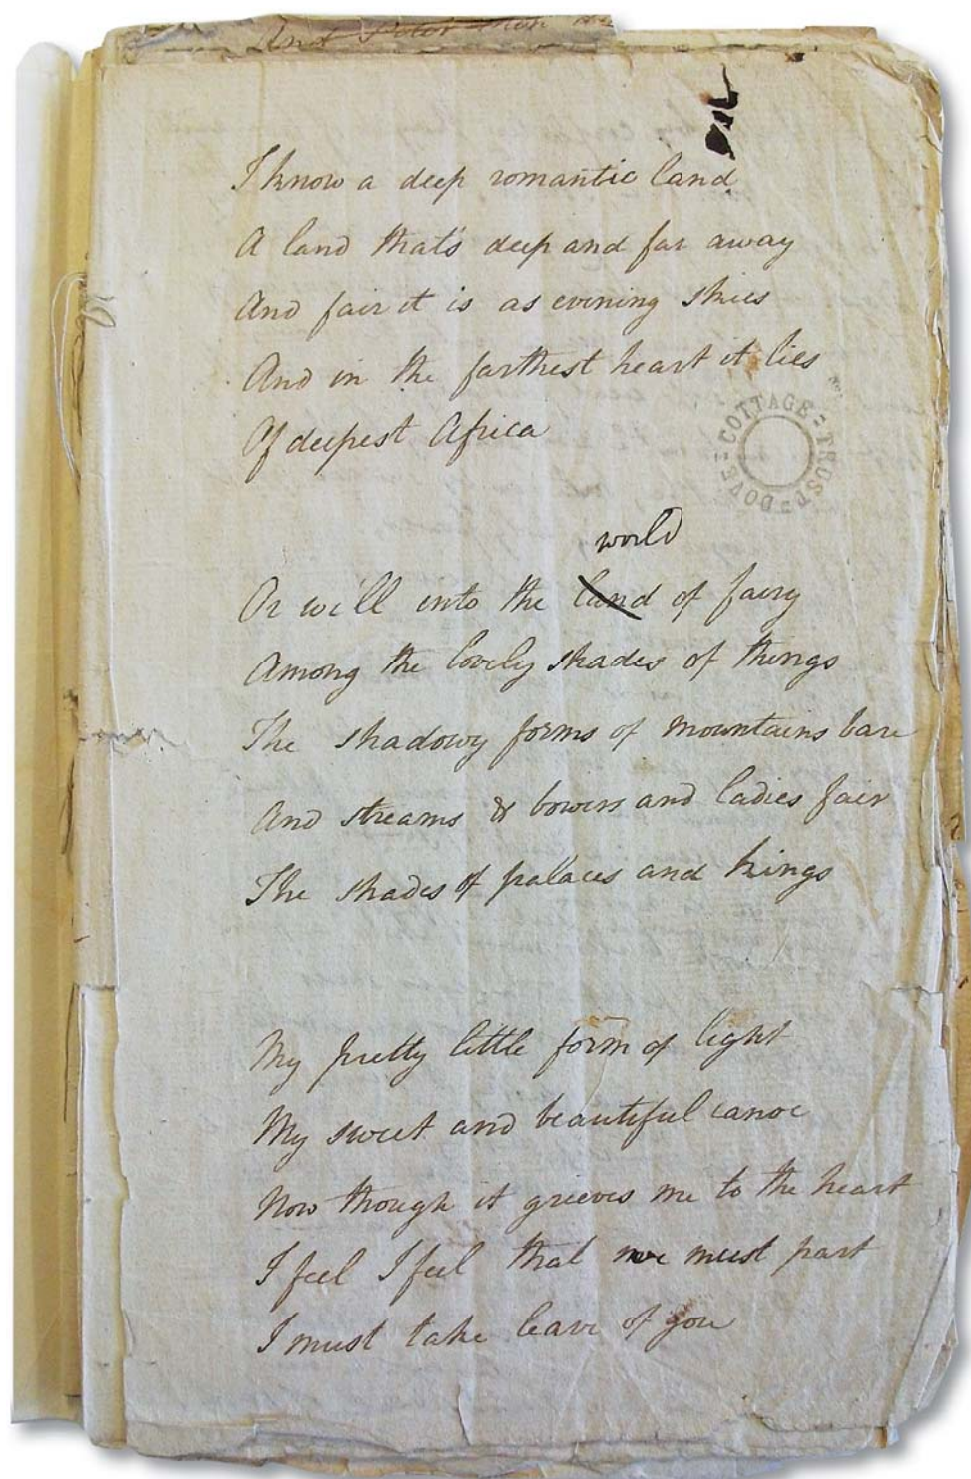 And Peter
I know a deep romantic land
A land that's deep and far away
And fair it is as evening skies
And in the farthest heart it lies
Of deepest Africa
DOVE = COTTAGE = TRUST =
world
Or we'll into the land of faery
Among the lovely shades of things
The shadowy forms of mountains bare
And streams & bowers and ladies fair
The shades of palaces and kings
My pretty little form of light
My sweet and beautiful canoe
Now though it grieves me to the heart
I feel I feel that we must part
I must take leave of you